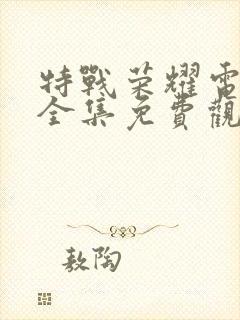 特戰荣耀電
全集免費觀
敖陶